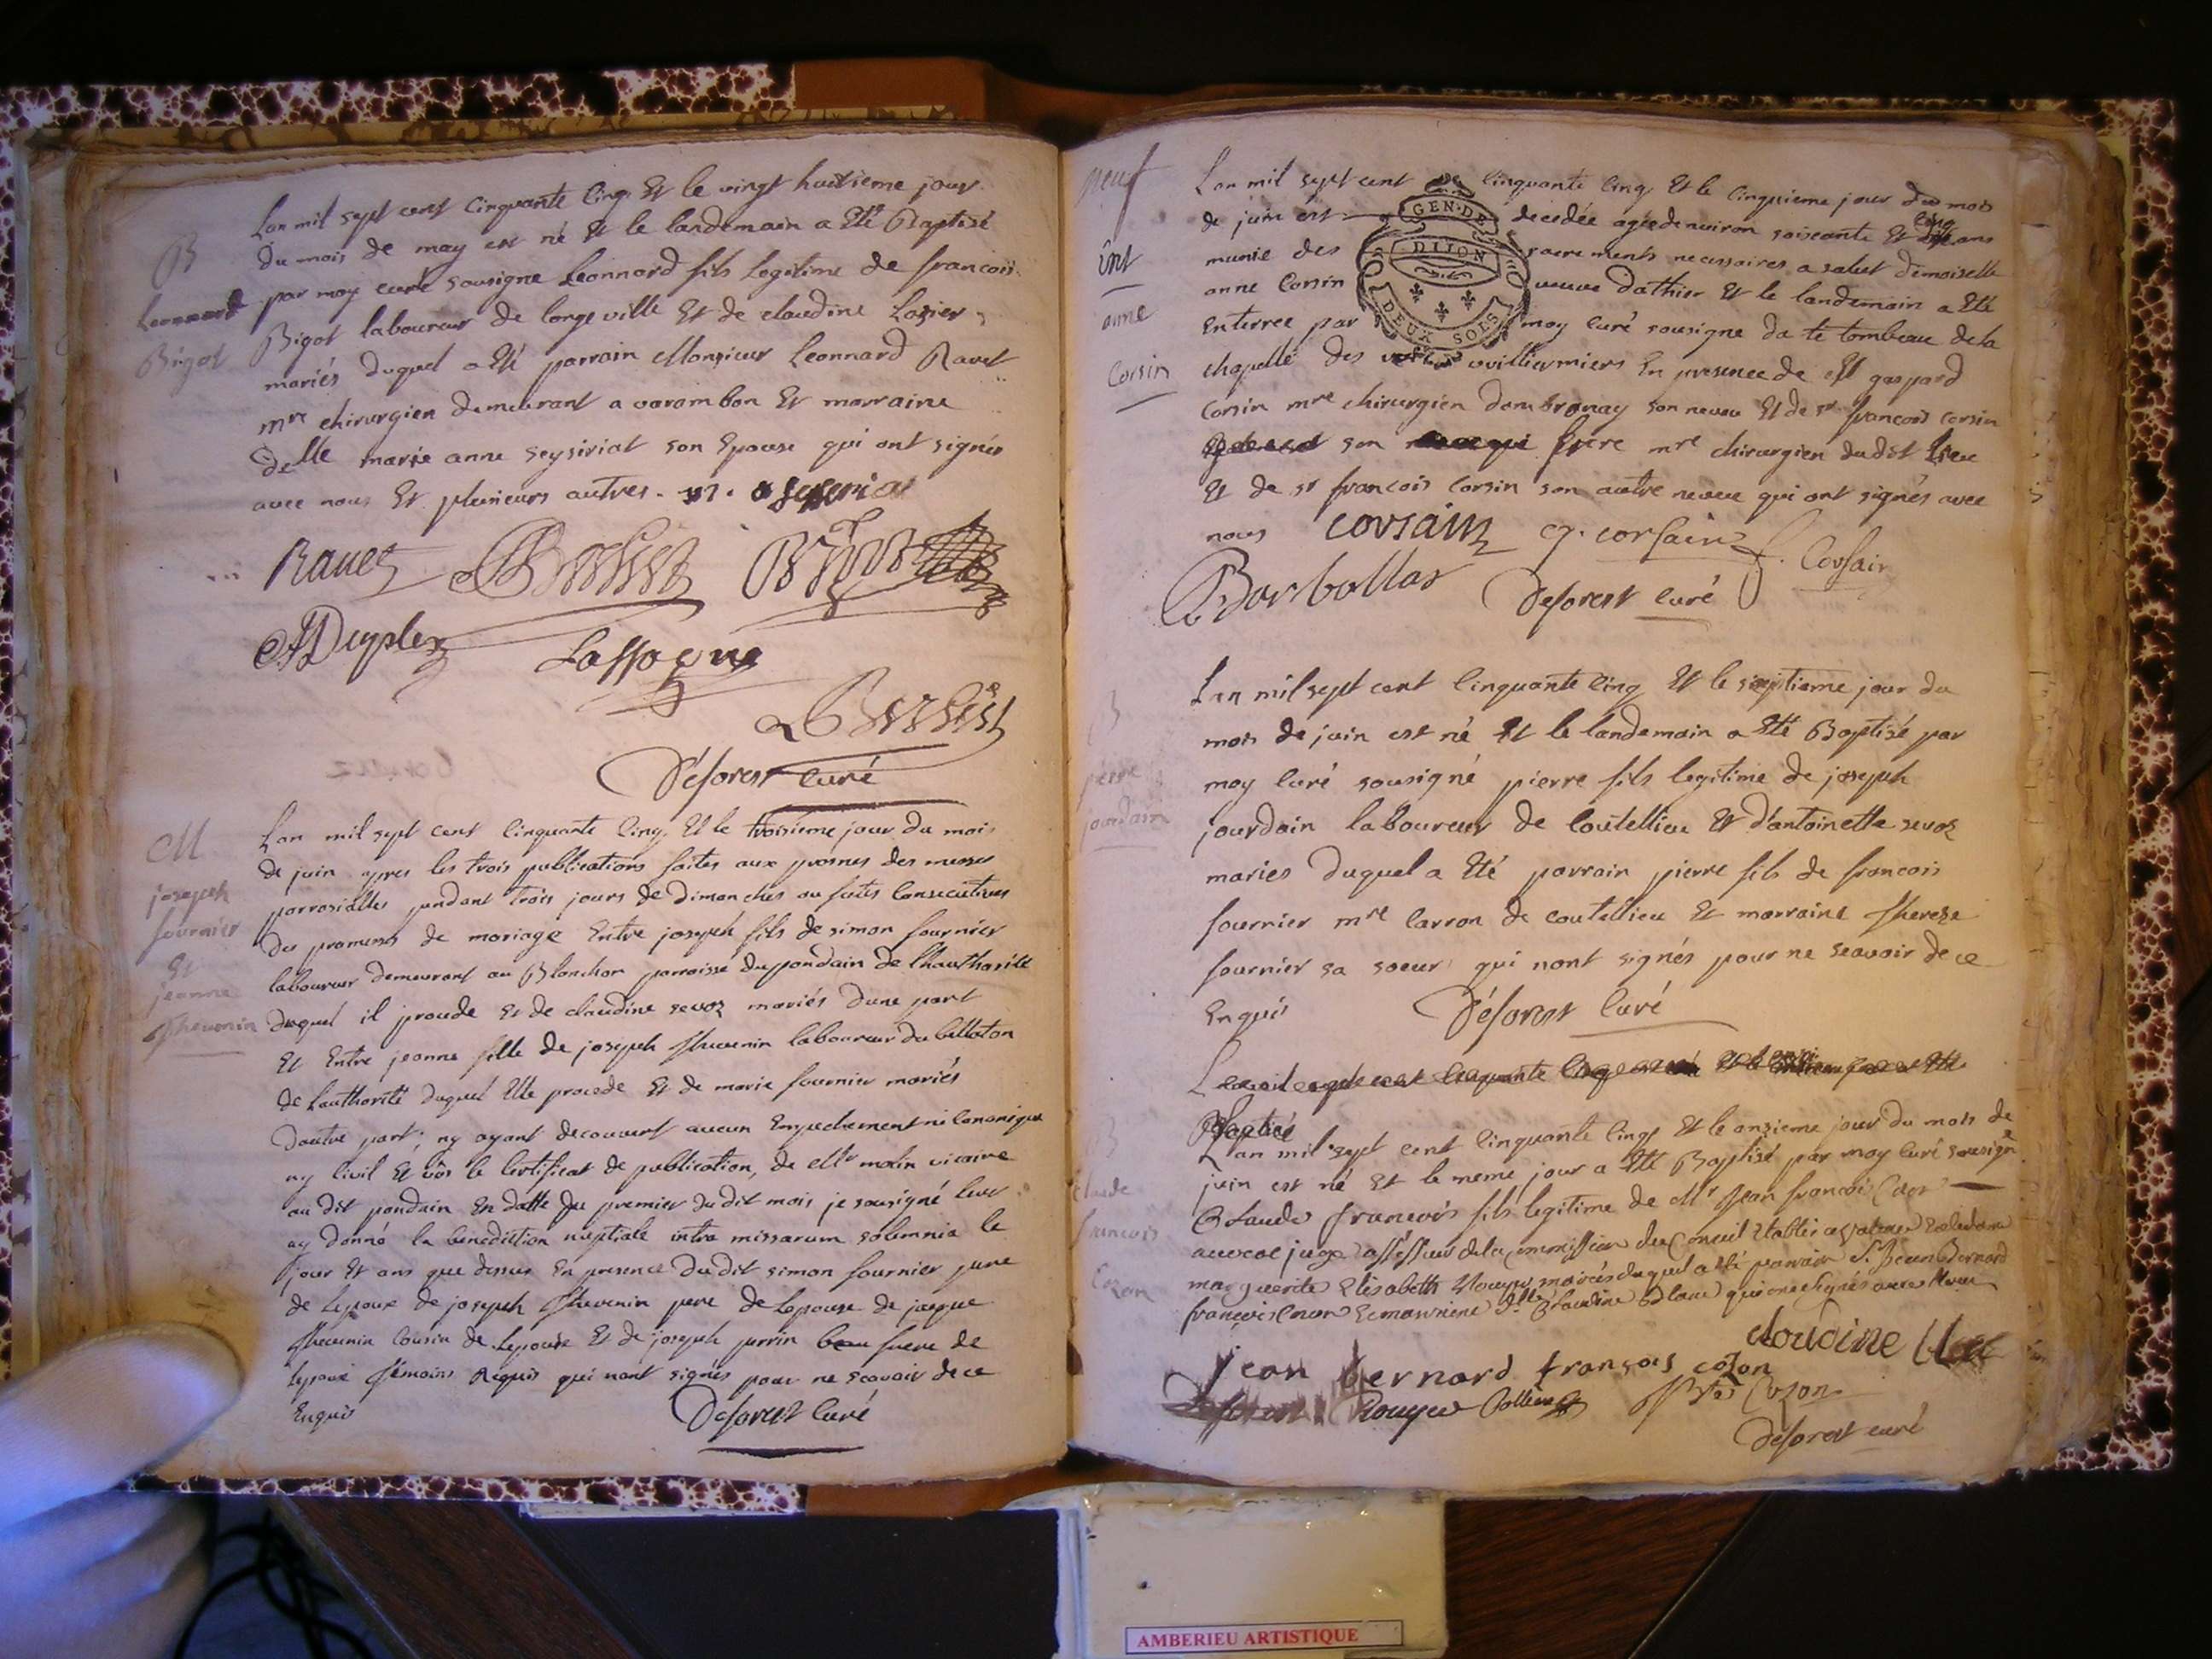 B
Leonnard
Bigot
Lan mil sept cent cinquante cinq Et le vingt huitieme jour
Du mois de may est né Et le landemain a Eté Baptisé
par moy curé sousigne Leonnard fils Legitime de francois
Bigot laboureur de longeville Et de claudine Lozier
mariés duquel a Eté parrain Monsieur Leonnard Ravet
mre chirurgien demeurant a varambon Et marraine
Delle marie anne seysiriat son Epouse qui ont signés
avec nous Et plusieurs autres.
Ravet
Duplex
Lassagne
Déforest curé
M
joseph
fournier
Et
jeanne
Thevenin
Lan mil sept cent cinquante cinq Et le troisieme jour du mois
de juin apres les trois publications faites aux prosnes des messes
parrosialles pendant trois jours de Dimanches ou faites consecutives
des promesses de mariage Entre joseph fils de simon fournier
laboureur demeurant au Blanchon parroisse du pondain de lhauthorité
duquel il procede Et de claudine sevoz mariés dune part
Et Entre jeanne fille de joseph Thevenin laboureur du bellaton
de Lauthorité duquel Elle procede Et de marie fournier mariés
dautre part; ny ayant decouvert aucun Empechement ni canonique
ny civil Et vûs le certificat de publication, de Mr molin vicaire
au dit pondain En datte du premier du dit mois je sousigné curé
ay donné la benediction nuptiale intra missarum solemnia le
jour Et ans que dessus En presence du dit simon fournier pere
de Lepoux de joseph Thevenin pere de Lepouse de jacque
Thevenin cousin de Lepouse Et de joseph perrin beau frere de
lepoux témoins Requis qui nont signés pour ne scavoir de ce
Enquis
Déforest curé
neuf
Ent
anne
Corsin
GEN·DE
DIJON
DEUX SOLS
Lan mil sept cent cinquante cinq Et le cinquieme jour du mois
de juin est decedée agée denuiron soiscante Et cinq ans
munie des sacrements necessaires a salut demoiselle
anne Corsin veuve Dathier Et le landemain a Eté
Enterree par moy curé sousigne da te tombeau de la
chapelle des vuillermiers En presence de gaspard
Corsin mre chirurgien dambronay son neveu Et de sr francois corsin
son frere mre chirurgien du dit Lieu
Et de sr francois Corsin son autre neveu qui ont signés avec
nous corsain g. corsain f. Corsain
Barbollat Deforest curé
B
pierre
jourdain
Lan mil sept cent cinquante cinq Et le septieme jour du
mois de juin est né Et le landemain a Eté Baptisé par
moy curé sousigné pierre fils legitime de joseph
jourdain laboureur de coutellieu Et d'antoinette sevoz
mariés duquel a Eté parrain pierre fils de francois
fournier mre carron de coutellieu Et marraine Thereze
fournier sa soeur qui nont signés pour ne scavoir de ce
Enquis Déforest curé
B
claude
francois
Cozon
Baptisé
Lan mil sept cent cinquante cinq Et le onzieme jour du mois de
juin est né Et le meme jour a Eté Baptisé par moy curé sousigné
Claude francois fils legitime de Mr Jean francois Cozon
auocat juge assesseur de la Commission du Conseil Etablie a Valence Et de dame
marguerite Elisabeth Rouyer mariés duquel a Eté parrain S. Jean Bernard
françois Cozon Et marraine Dlle Claudine qui ont signés avec Nous
claudine
jean bernard françois cozon
Rouyer Cozon
deforest curé
AMBERIEU ARTISTIQUE